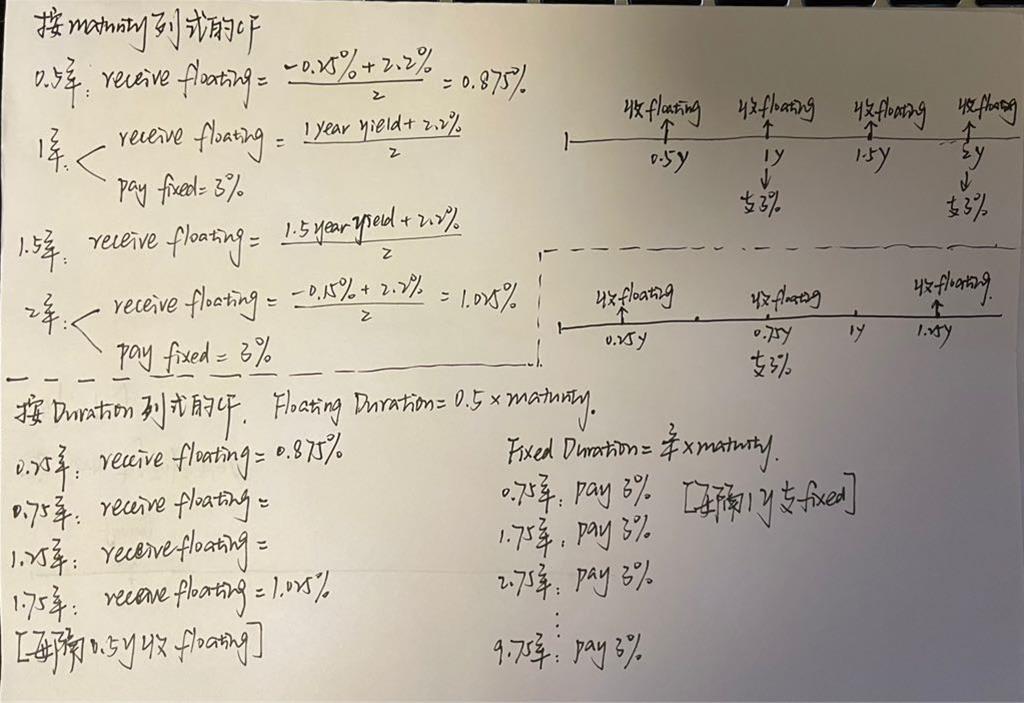 按maturity列式的CF
0.5年: receive floating = (-0.25% + 2.2%)/2 = 0.875%
1年: receive floating = (1 year yield + 2.2%)/2
pay fixed = 3%
1.5年: receive floating = (1.5 year yield + 2.2%)/2
2年: receive floating = (-0.15% + 2.2%)/2 = 1.025%
pay fixed = 3%
收floating 收floating 收floating 收floating
0.5y 1y 1.5y 2y
支3% 支3%
收floating 收floating 收floating.
0.25y 0.75y 1y 1.25y
支3%
按Duration列式的CF. Floating Duration = 0.5 × maturity.
0.25年: receive floating = 0.875%
0.75年: receive floating =
1.25年: receive floating =
1.75年: receive floating = 1.025%
[每隔0.5y收floating]
Fixed Duration = 3/4 × maturity.
0.75年: pay 3% [每隔1y支fixed]
1.75年: pay 3%
2.75年: pay 3%
⋮
9.75年: pay 3%